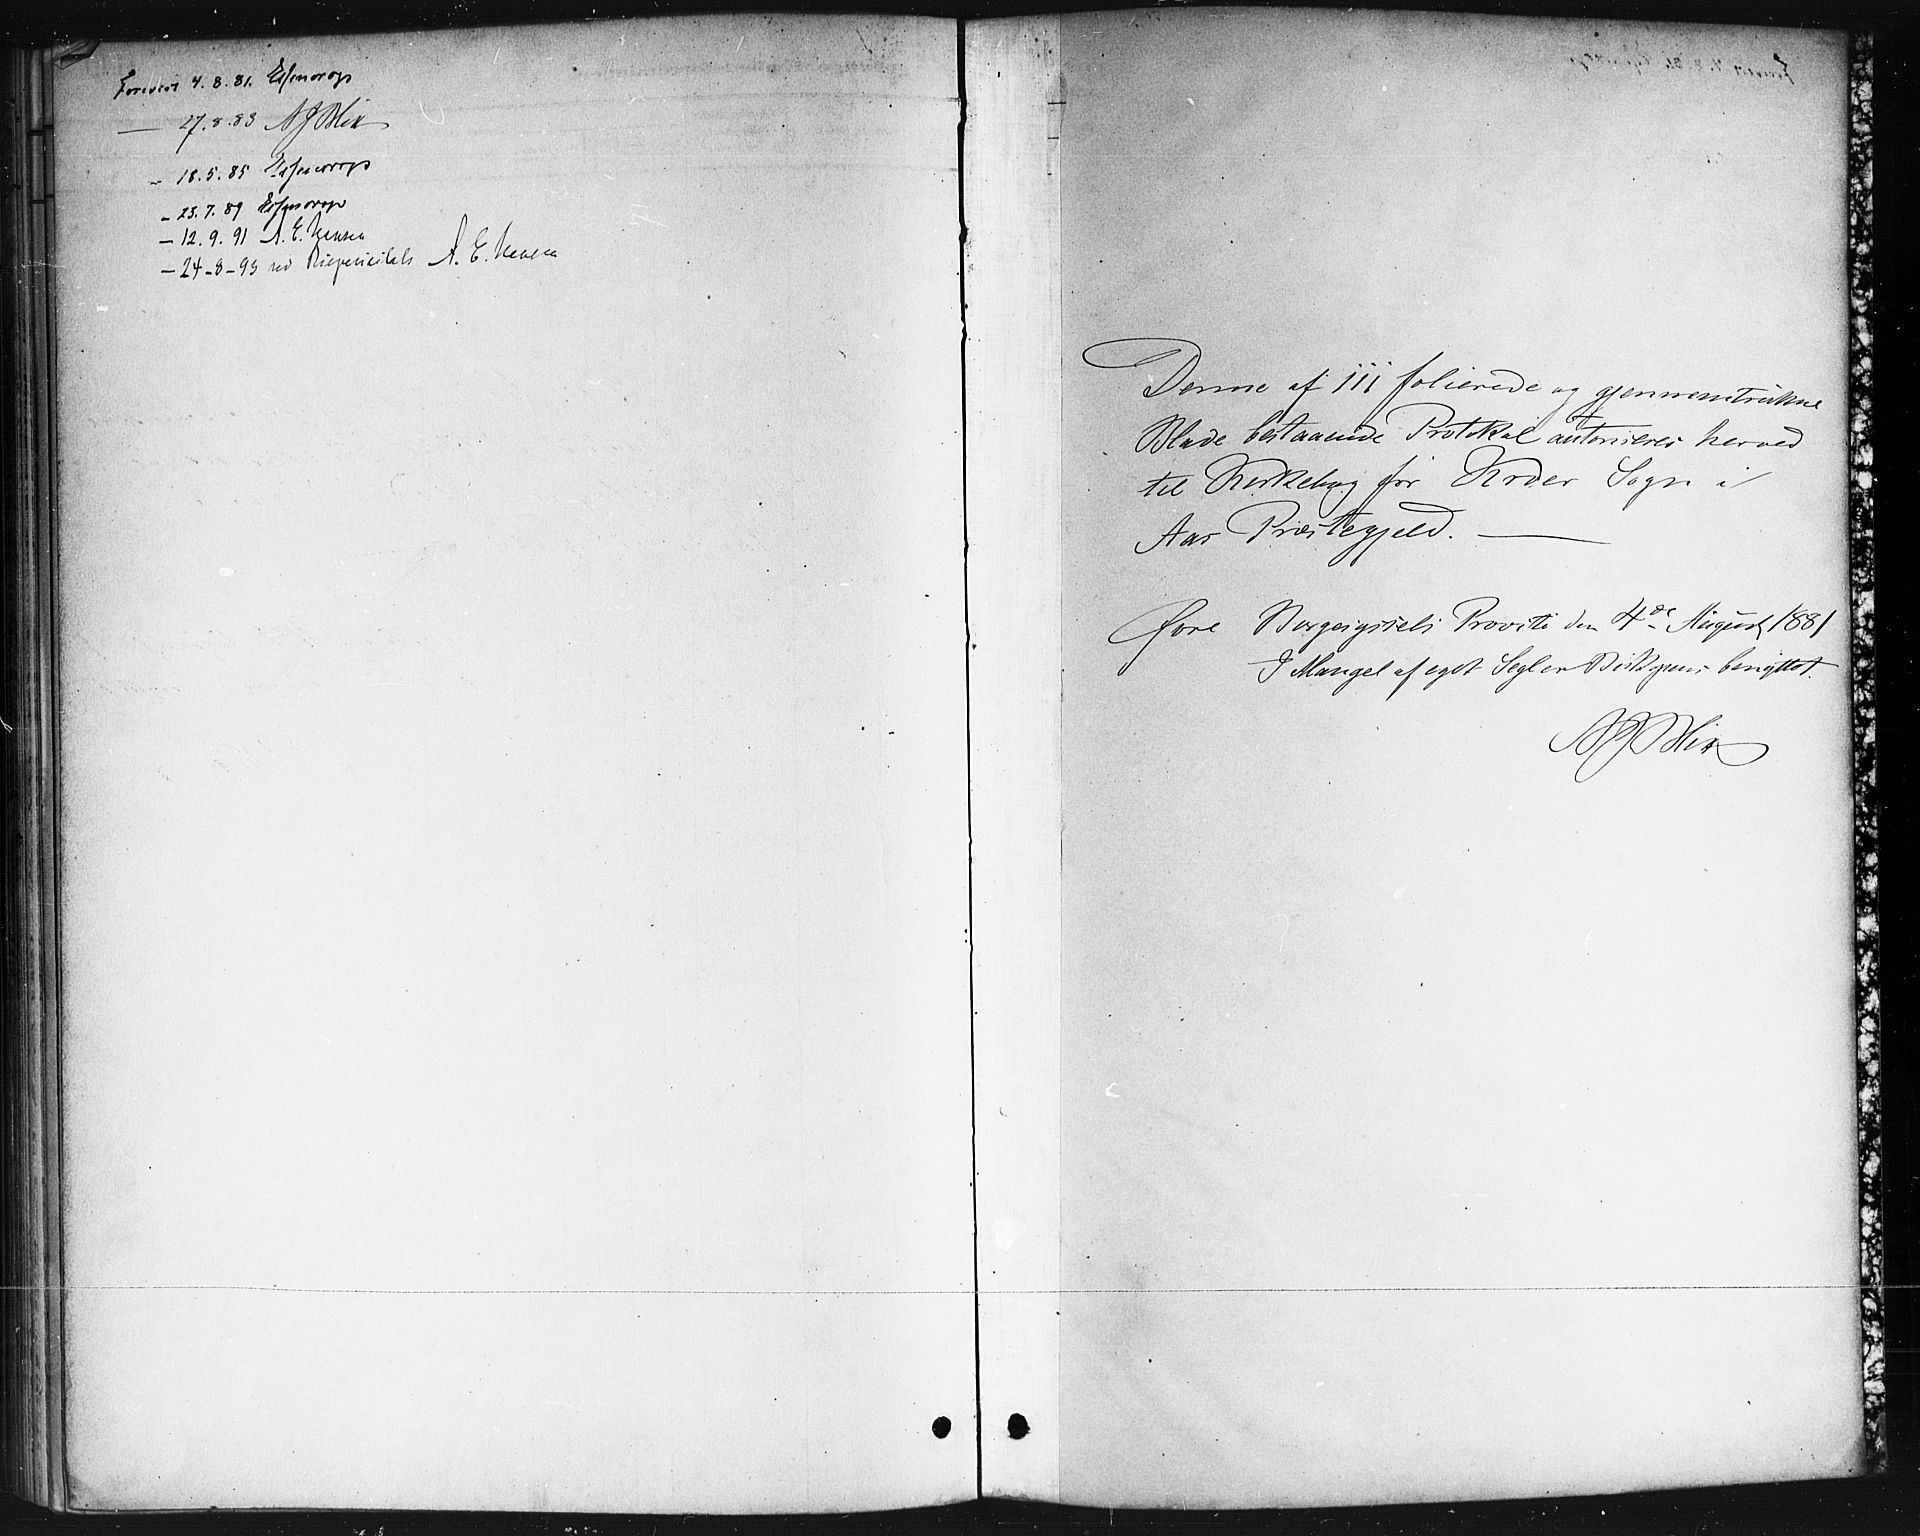 Forevist 4.8.81. Essendrop
— 27.8.83 AJBlix
– 18.5.85 Essendrop
– 23.7.89 Essendrop
– 12.9.91 A. E. Hansen
– 24–8–93 ved Bispevisitats A. E. Hansen
Denne af 111 folierede og gjennemtrukne
Blade bestaaende Protokol autoriseres herved
til Kirkebog for Kroer Sogn i
Aas Præstegjeld. —
Øvre Borgesyssels Provsti den 4de August 1881
I Mangel af eget Segl er Biskopens benyttet.
AJBlix